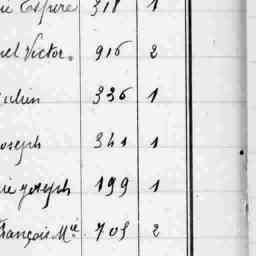 ie Espere 318 1
uel Victor. 916 2
ulien 336 1
oseph 341 1
ie joseph 199 1
rançois Mie 705 2